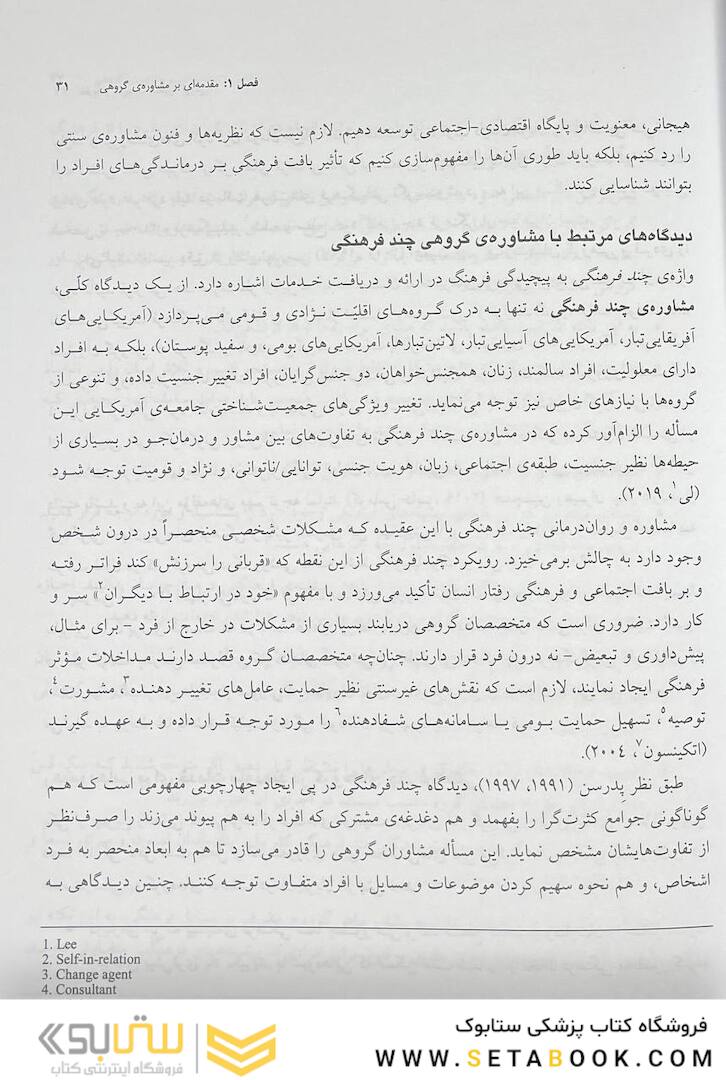 فصل ۱: مقدمه‌ای بر مشاوره‌ی گروهی ۳۱
هیجانی، معنویت و پایگاه اقتصادی-اجتماعی توسعه دهیم. لازم نیست که نظریه‌ها و فنون مشاوره‌ی سنتی
را رد کنیم، بلکه باید طوری آن‌ها را مفهوم‌سازی کنیم که تأثیر بافت فرهنگی بر درماندگی‌های افراد را
بتوانند شناسایی کنند.
دیدگاه‌های مرتبط با مشاوره‌ی گروهی چند فرهنگی
واژه‌ی چند فرهنگی به پیچیدگی فرهنگ در ارائه و دریافت خدمات اشاره دارد. از یک دیدگاه کلّی،
مشاوره‌ی چند فرهنگی نه تنها به درک گروه‌های اقلیّت نژادی و قومی می‌پردازد (آمریکایی‌های
آفریقایی‌تبار، آمریکایی‌های آسیایی‌تبار، لاتین‌تبارها، آمریکایی‌های بومی، و سفید پوستان)، بلکه به افراد
دارای معلولیت، افراد سالمند، زنان، همجنس‌خواهان، دو جنس‌گرایان، افراد تغییر جنسیت داده، و تنوعی از
گروه‌ها با نیازهای خاص نیز توجه می‌نماید. تغییر ویژگی‌های جمعیت‌شناختی جامعه‌ی آمریکایی این
مسأله را الزام‌آور کرده که در مشاوره‌ی چند فرهنگی به تفاوت‌های بین مشاور و درمان‌جو در بسیاری از
حیطه‌ها نظیر جنسیت، طبقه‌ی اجتماعی، زبان، هویت جنسی، توانایی/ناتوانی، و نژاد و قومیت توجه شود
(لی۱، ۲۰۱۹).
مشاوره و روان‌درمانی چند فرهنگی با این عقیده که مشکلات شخصی منحصراً در درون شخص
وجود دارد به چالش برمی‌خیزد. رویکرد چند فرهنگی از این نقطه که «قربانی را سرزنش» کند فراتر رفته
و بر بافت اجتماعی و فرهنگی رفتار انسان تأکید می‌ورزد و با مفهوم «خود در ارتباط با دیگران۲» سر و
کار دارد. ضروری است که متخصصان گروهی دریابند بسیاری از مشکلات در خارج از فرد – برای مثال،
پیش‌داوری و تبعیض– نه درون فرد قرار دارند. چنان‌چه متخصصان گروه قصد دارند مداخلات مؤثر
فرهنگی ایجاد نمایند، لازم است که نقش‌های غیرسنتی نظیر حمایت، عامل‌های تغییر دهنده۳، مشورت۴،
توصیه۵، تسهیل حمایت بومی یا سامانه‌های شفادهنده۶ را مورد توجه قرار داده و به عهده گیرند
(اتکینسون۷، ۲۰۰۴).
طبق نظر پِدرسن (۱۹۹۱، ۱۹۹۷)، دیدگاه چند فرهنگی در پی ایجاد چهارچوبی مفهومی است که هم
گوناگونی جوامع کثرت‌گرا را بفهمد و هم دغدغه‌ی مشترکی که افراد را به هم پیوند می‌زند را صرف‌نظر
از تفاوت‌هایشان مشخص نماید. این مسأله مشاوران گروهی را قادر می‌سازد تا هم به ابعاد منحصر به فرد
اشخاص، و هم نحوه سهیم کردن موضوعات و مسایل با افراد متفاوت توجه کنند. چنین دیدگاهی به
1. Lee
2. Self-in-relation
3. Change agent
4. Consultant
فروشگاه کتاب پزشکی ستابوک
WWW.SETABOOK.COM
ستابوک
فروشگاه اینترنتی کتاب